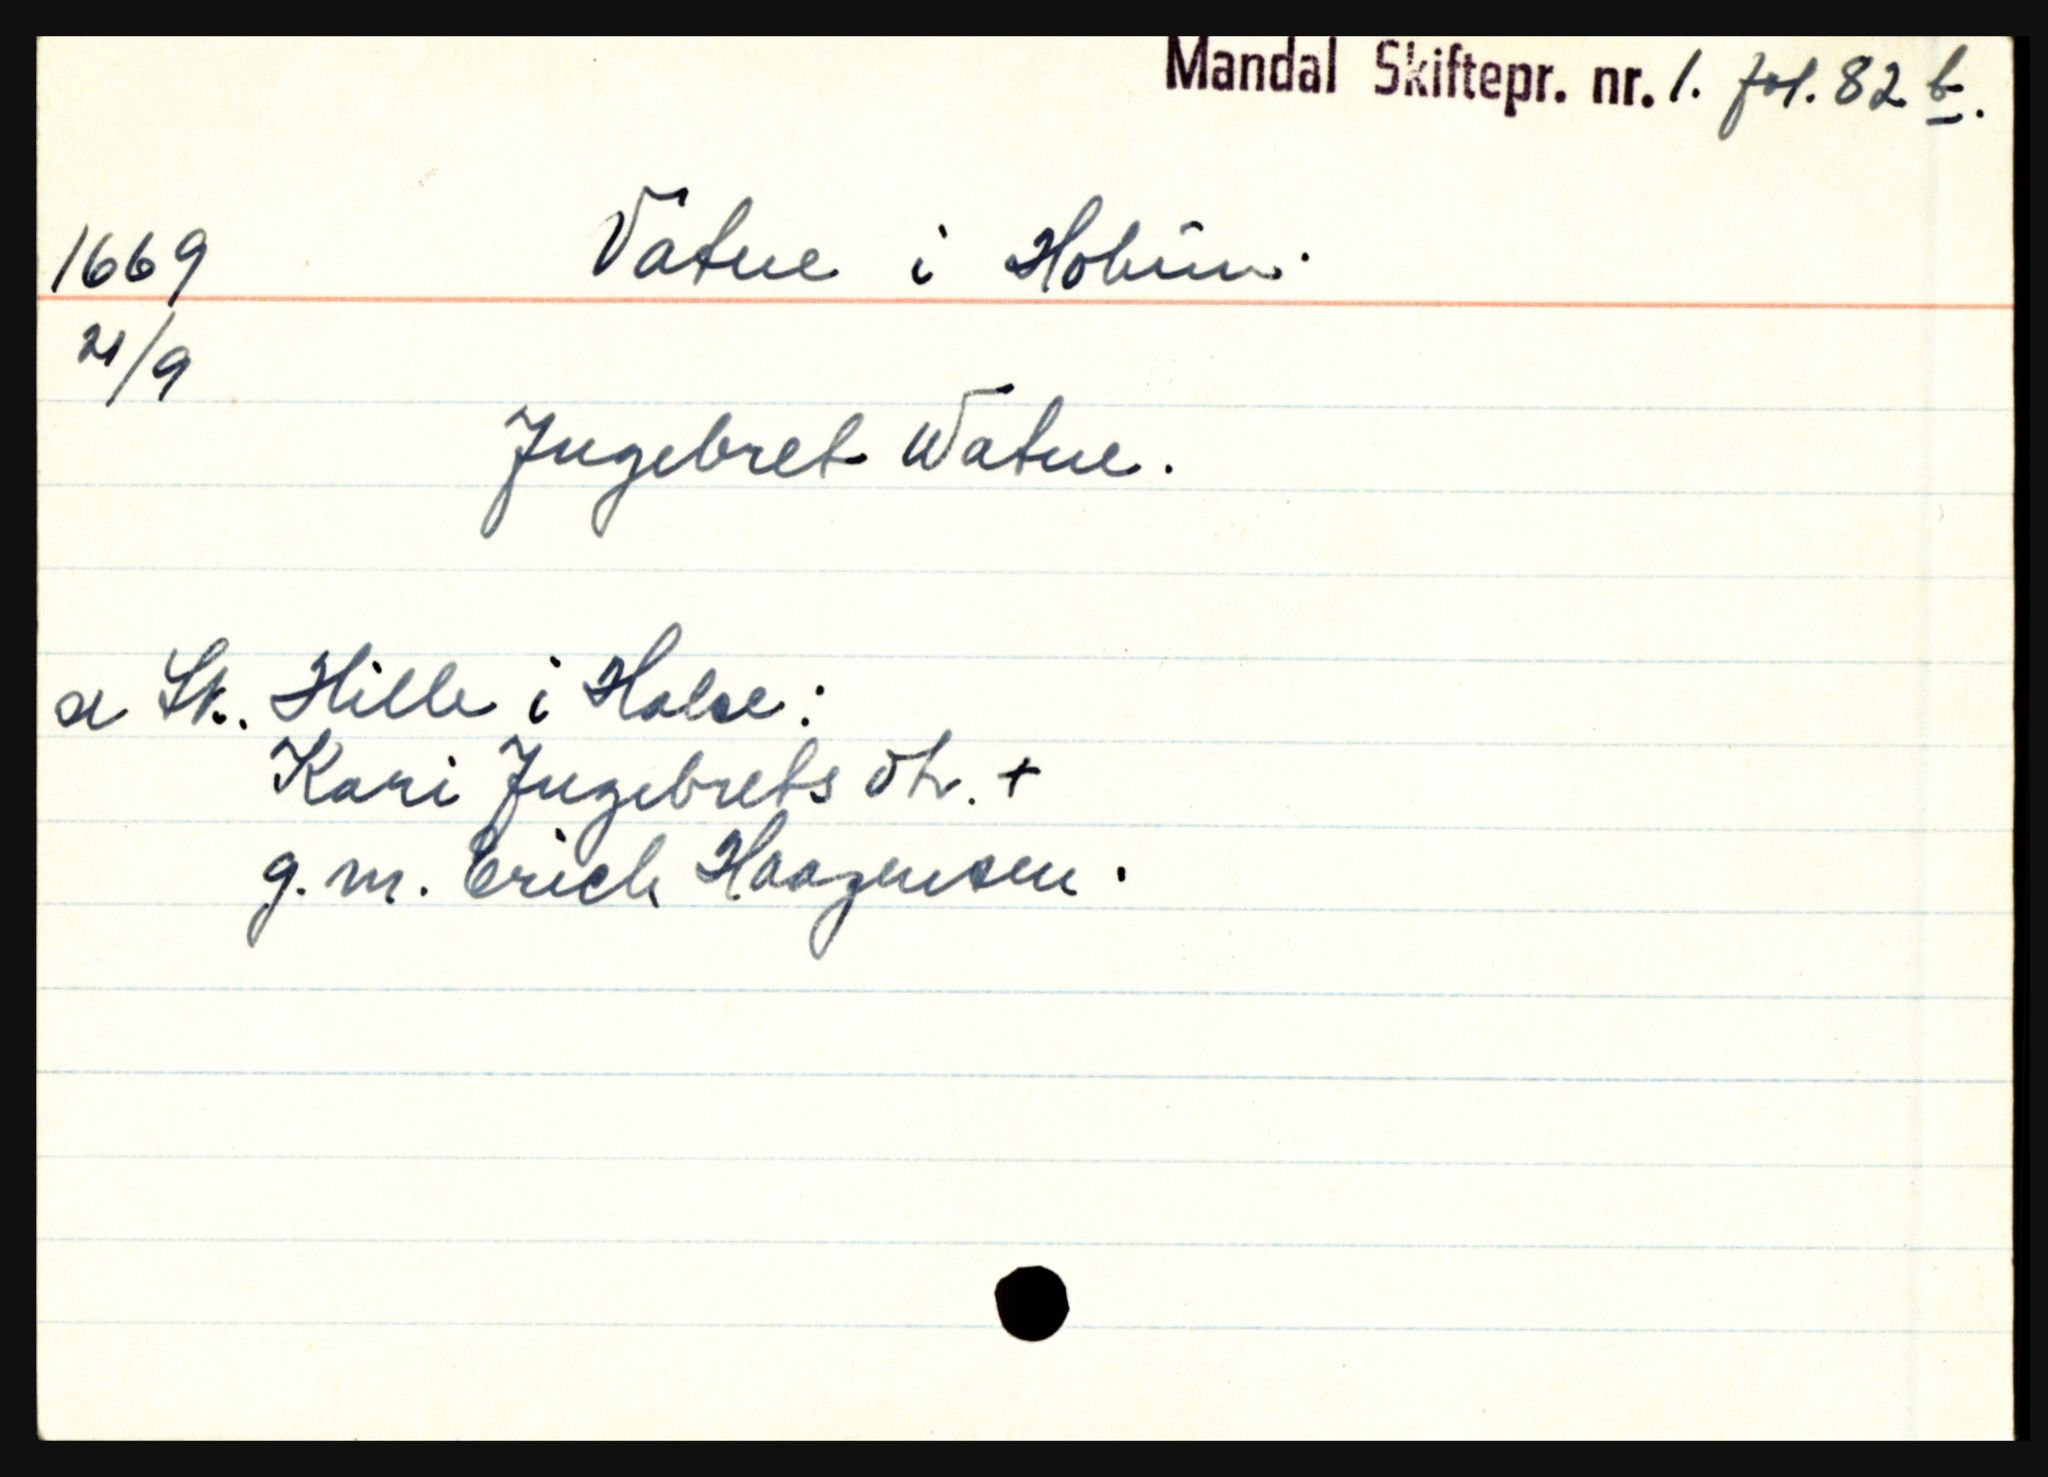 Mandal Skiftepr. nr. 1. fol. 82 b.
1669 Vatne i Holum.
21/9
Ingebret Watne.
se Sk. Hille i Halse:
Kari Ingebrets dtr. +
g. m. Erich Haagensen.